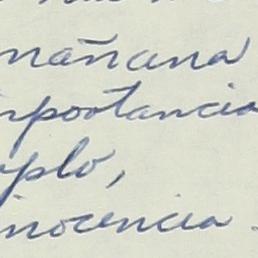 mañana
mportancia
plo,
inocencia.